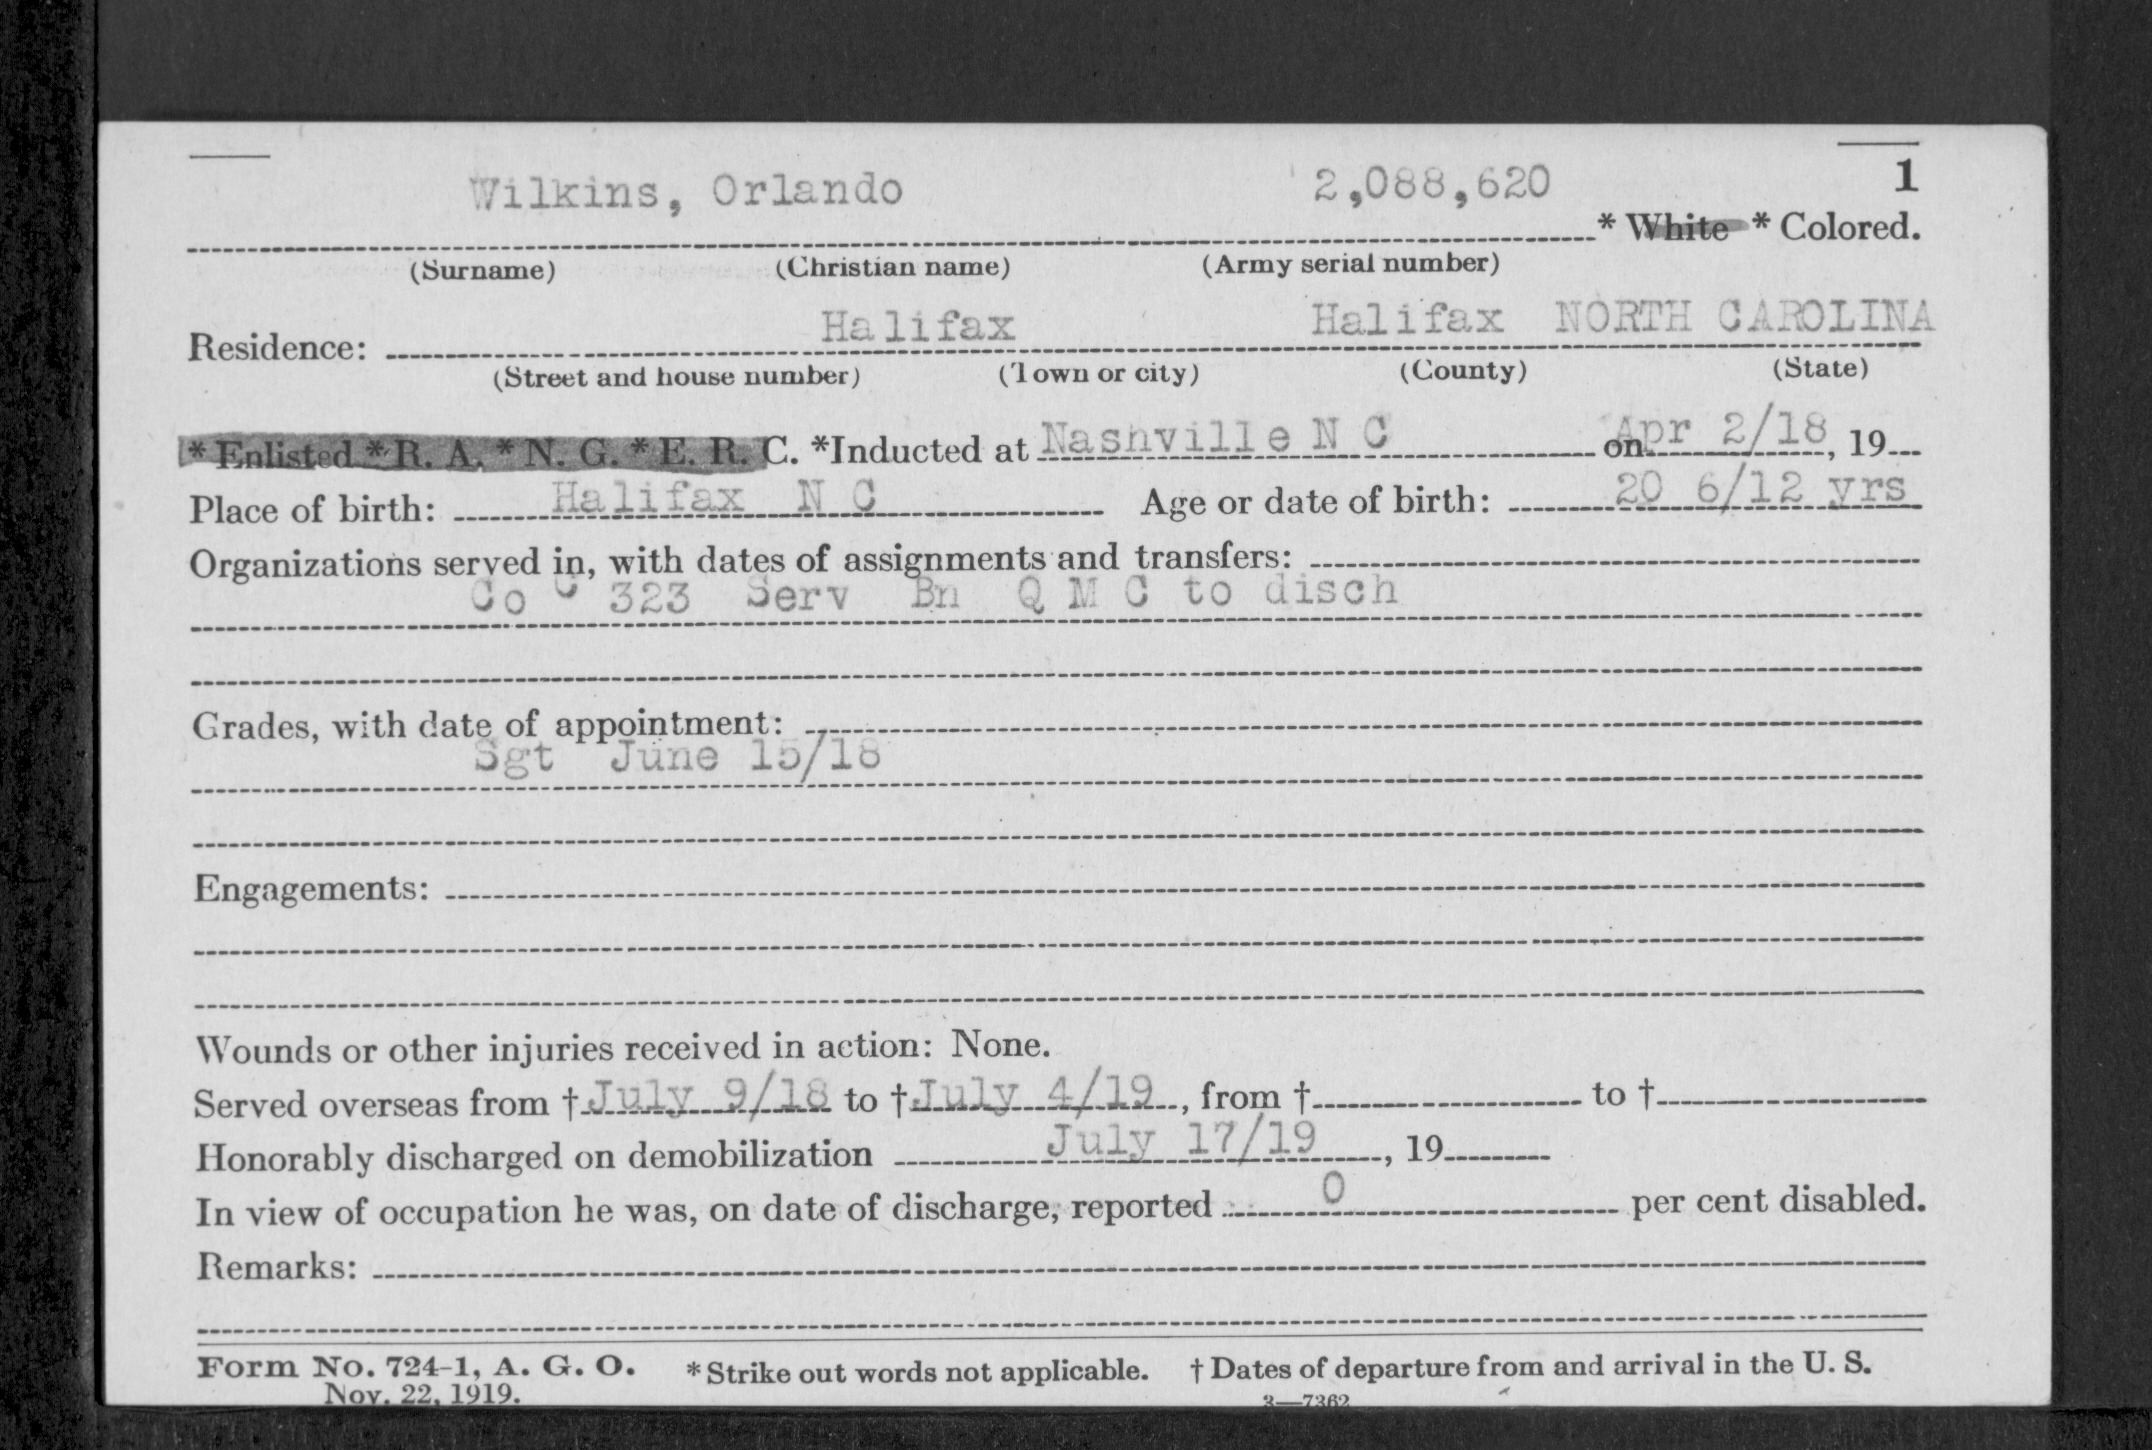 1
Wilkins, Orlando 2,088,620 * White * Colored.
(Surname) (Christian name) (Army serial number)
Residence: Halifax Halifax NORTH CAROLINA
(Street and house number) (Town or city) (County) (State)
* Enlisted * R. A. * N. G. * E. R. C. *Inducted at Nashville N C on Apr 2/18, 19
Place of birth: Halifax N C Age or date of birth: 20 6/12 yrs
Organizations served in, with dates of assignments and transfers:
Co C 323 Serv Bn Q M C to disch
Grades, with date of appointment:
Sgt June 15/18
Engagements:
Wounds or other injuries received in action: None.
Served overseas from † July 9/18 to † July 4/19, from † to †
Honorably discharged on demobilization July 17/19, 19
In view of occupation he was, on date of discharge, reported 0 per cent disabled.
Remarks:
Form No. 724-1, A. G. O. * Strike out words not applicable. † Dates of departure from and arrival in the U. S.
Nov. 22, 1919. 3—7362